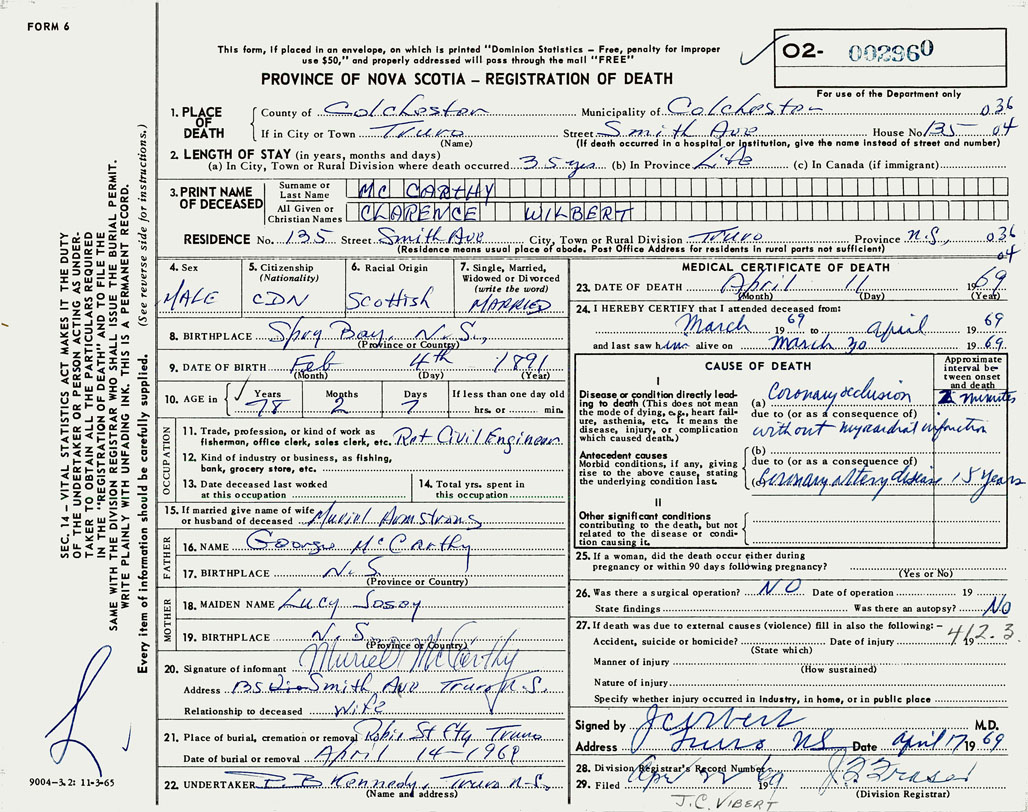 FORM 6
This form, if placed in an envelope, on which is printed "Dominion Statistics – Free, penalty for improper
use $50," and properly addressed will pass through the mail "FREE"
O2- 002960
PROVINCE OF NOVA SCOTIA – REGISTRATION OF DEATH
For use of the Department only
1. PLACE OF DEATH
County of Colchester Municipality of Colchester 036
If in City or Town Truro Street Smith Ave House No 135 04
(Name) (If death occurred in a hospital or institution, give the name instead of street and number)
2. LENGTH OF STAY (in years, months and days)
(a) In City, Town or Rural Division where death occurred 35 yrs (b) In Province Life (c) In Canada (if immigrant)
3. PRINT NAME OF DECEASED
Surname or Last Name MC CARTHY
All Given or Christian Names CLARENCE WILBERT
RESIDENCE No. 135 Street Smith Ave City, Town or Rural Division Truro Province N.S., 036
(Residence means usual place of abode. Post Office Address for residents in rural parts not sufficient) 04
4. Sex MALE
5. Citizenship (Nationality) CDN
6. Racial Origin Scottish
7. Single, Married, Widowed or Divorced (write the word) MARRIED
8. BIRTHPLACE Spry Bay, N.S.,
(Province or Country)
9. DATE OF BIRTH Feb 4th 1891
(Month) (Day) (Year)
10. AGE in Years Months Days If less than one day old
78 2 7 hrs. or min.
OCCUPATION
11. Trade, profession, or kind of work as
fisherman, office clerk, sales clerk, etc. Ret Civil Engineer
12. Kind of industry or business, as fishing,
bank, grocery store, etc.
13. Date deceased last worked at this occupation
14. Total yrs. spent in this occupation
15. If married give name of wife
or husband of deceased Muriel Armstrong
FATHER
16. NAME George McCarthy
17. BIRTHPLACE N.S.
(Province or Country)
MOTHER
18. MAIDEN NAME Lucy
19. BIRTHPLACE N.S.
(Province or Country)
20. Signature of informant Muriel McCarthy
Address 135 Smith Ave Truro N.S.
Relationship to deceased Wife
21. Place of burial, cremation or removal Robie St Truro
Date of burial or removal April 14-1969
22. UNDERTAKER Kennedy, Truro N.S.
(Name and address)
MEDICAL CERTIFICATE OF DEATH
23. DATE OF DEATH April 11 1969
(Month) (Day) (Year)
24. I HEREBY CERTIFY that I attended deceased from:
March 1969 to April 1969
and last saw him alive on March 30 1969
CAUSE OF DEATH
Approximate interval between onset and death
I
Disease or condition directly leading to death (This does not mean the mode of dying, e.g., heart failure, asthenia, etc. It means the disease, injury, or complication which caused death.)
(a) Coronary occlusion minutes
due to (or as a consequence of)
without myocardial infarction
Antecedent causes
Morbid conditions, if any, giving rise to the above cause, stating the underlying condition last.
(b)
due to (or as a consequence of)
(c) Coronary artery disease 15 years
II
Other significant conditions contributing to the death, but not related to the disease or condition causing it.
25. If a woman, did the death occur either during
pregnancy or within 90 days following pregnancy?
(Yes or No)
26. Was there a surgical operation? NO Date of operation 19
State findings Was there an autopsy? No
27. If death was due to external causes (violence) fill in also the following: –
412.3
Accident, suicide or homicide? Date of injury 19
(State which)
Manner of injury
(How sustained)
Nature of injury
Specify whether injury occurred in Industry, in home, or in public place
Signed by J C Vibert M.D.
Address Truro NS Date April 17 1969
28. Division Registrar's Record Number
29. Filed 1969 Fraser
(Division Registrar)
J.C. VIBERT
SEC. 14 – VITAL STATISTICS ACT MAKES IT THE DUTY
OF THE UNDERTAKER OR PERSON ACTING AS UNDER-
TAKER TO OBTAIN ALL THE PARTICULARS REQUIRED
IN THE "REGISTRATION OF DEATH" AND TO FILE THE
SAME WITH THE DIVISION REGISTRAR WHO SHALL ISSUE THE BURIAL PERMIT.
WRITE PLAINLY WITH UNFADING INK. THIS IS A PERMANENT RECORD.
Every item of information should be carefully supplied. (See reverse side for instructions.)
9004–3.2: 11-3-65